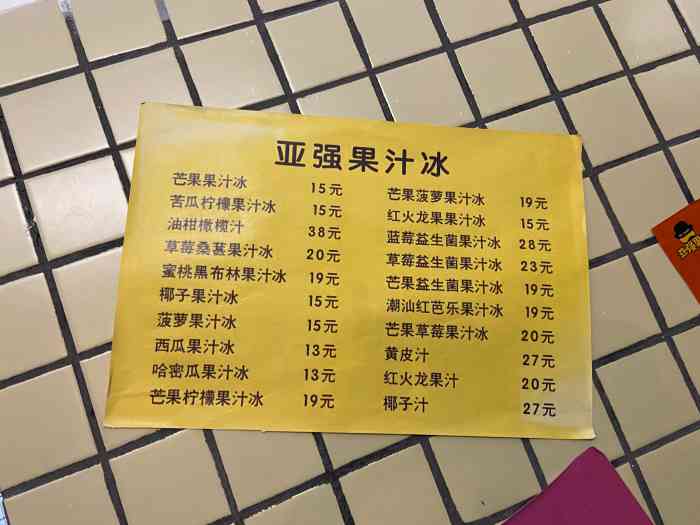 亚强果汁冰
芒果果汁冰 15元
苦瓜柠檬果汁冰 15元
油柑橄榄汁 38元
草莓桑葚果汁冰 20元
蜜桃黑布林果汁冰 19元
椰子果汁冰 15元
菠萝果汁冰 15元
西瓜果汁冰 13元
哈密瓜果汁冰 13元
芒果柠檬果汁冰 19元
芒果菠萝果汁冰 19元
红火龙果果汁冰 15元
蓝莓益生菌果汁冰 28元
草莓益生菌果汁冰 23元
芒果益生菌果汁冰 19元
潮汕红芭乐果汁冰 19元
芒果草莓果汁冰 20元
黄皮汁 27元
红火龙果汁 20元
椰子汁 27元